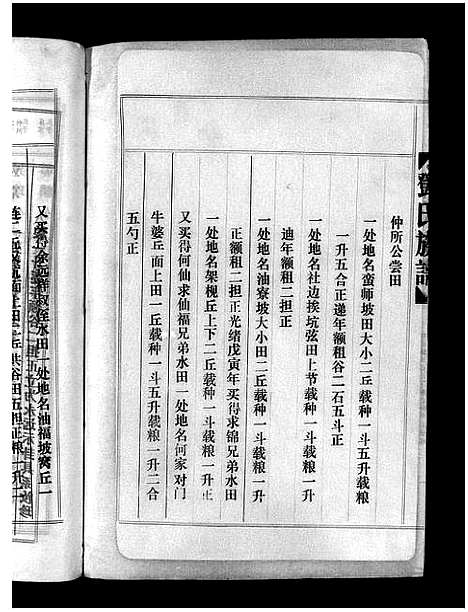 鄧氏族譜
仲所公尝田
一处地名蛮师坡田大小二丘载种一斗五升载粮
一升五合正递年额租谷二石五斗正
一处地名社边挨坑弦田上节载种一斗载粮一升
迪年额租二担正
一处地名油寮坡大小田二丘载种一斗载粮一升
正额租二担正光绪戊寅年买得求锦兄弟水田
一处地名架枧丘上下二丘载种一斗载粮一升正
又买得何仙求仙福兄弟水田一处地名何家对门
牛婆丘面上田一丘载种一斗五升载粮一升二合
五勺正
又买得徐远祥叔侄水田一处地名油福坡窝丘一